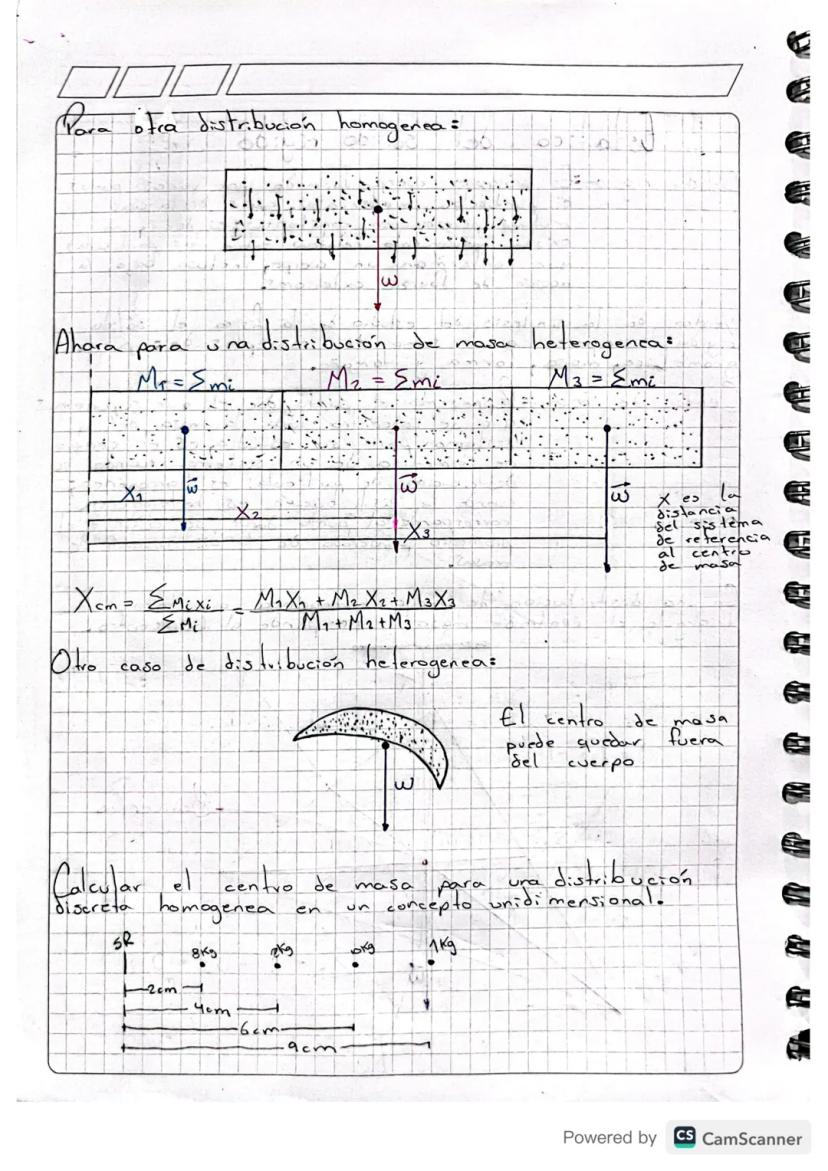 Para otra distribución homogenea:
w
Ahara para una distribución de masa heterogenea:
M₁ = Σmi M₂ = Σmi M₃ = Σmi
w⃗ w⃗ w⃗
X₁
X₂
X₃
X es la
distancia
del sistema
de referencia
al centro
de masa
Xcm = ΣMixi / ΣMi = M₁X₁ + M₂X₂ + M₃X₃ / M₁ + M₂ + M₃
Otro caso de distribución heterogenea:
El centro de masa
puede quedar fuera
del cuerpo
w
Calcular el centro de masa para una distribución
discreta homogenea en un concepto unidimensional.
SR 8Kg 2Kg 1Kg
2cm
4cm
6cm
9cm
Powered by CS CamScanner